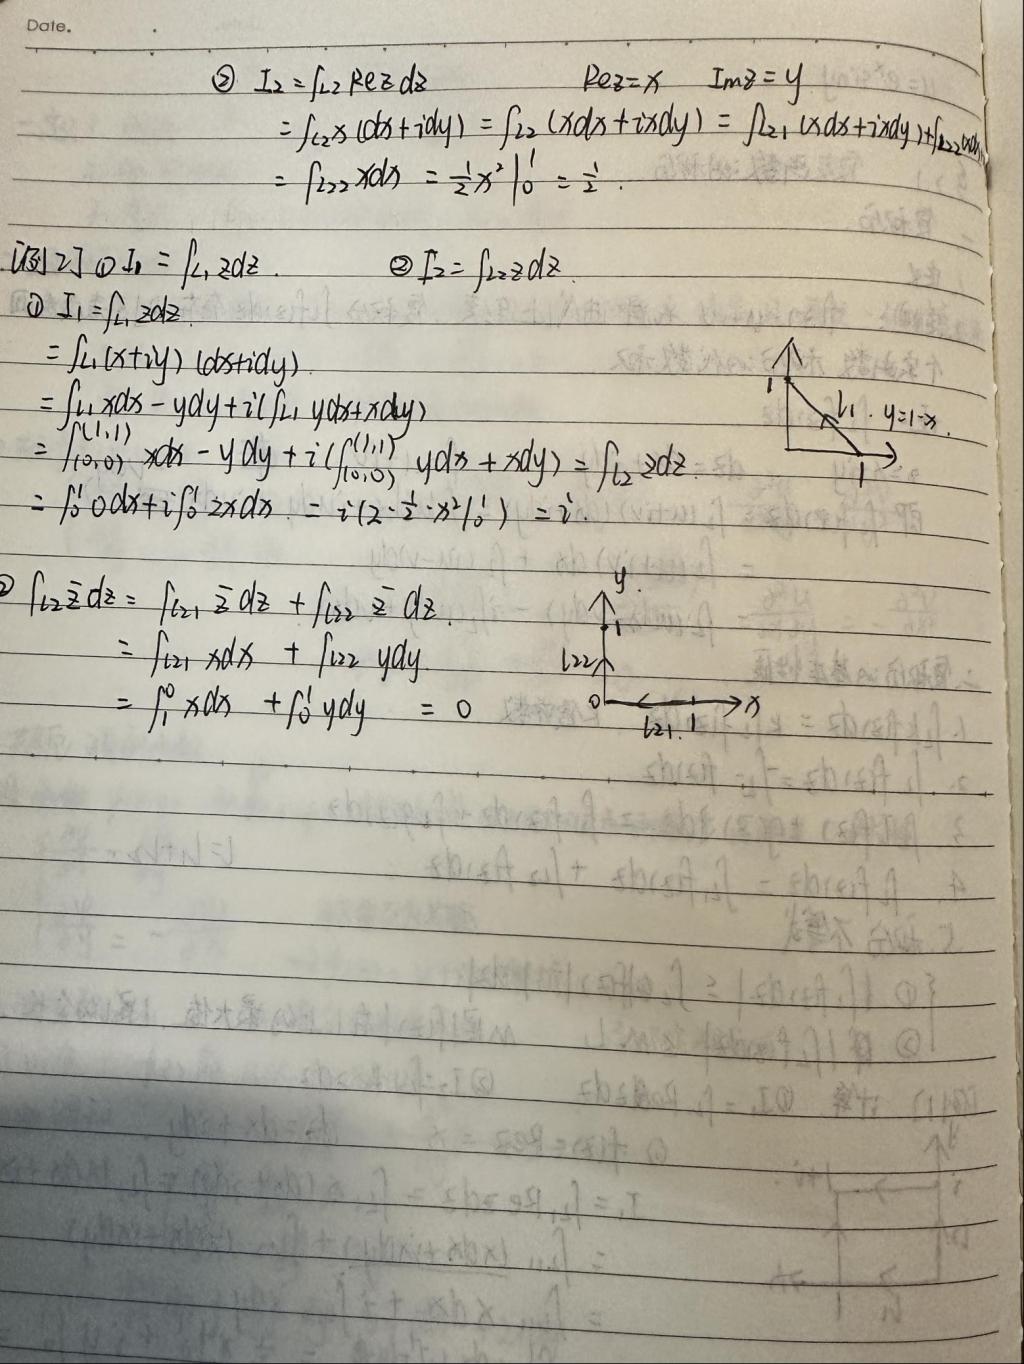 Date.
② I₂=∫L₂ Rez dz Rez=x Imz=y
=∫L₂ x(dx+idy) = ∫L₂ (xdx+ixdy) = ∫L₂₁ (xdx+ixdy)+∫L₂₂
= ∫L₂₂ xdx = ½x²|₀¹ = ½.
[例2] ① I₁=∫L₁ zdz. ② I₂=∫L₂ z dz
① I₁=∫L₁ zdz.
=∫L₁ (x+iy)(dx+idy)
=∫L₁ xdx-ydy+i(∫L₁ ydx+xdy)
1 L₁. y=1-x.
=∫(0,0)(1,1) xdx-ydy+i(∫(0,0)(1,1) ydx+xdy)=∫L₂ zdz.
1
=∫₀¹0dx+i∫₀¹2xdx. = i(2·½·x²|₀¹) = i.
② ∫L₂ z̄dz = ∫L₂₁ z̄dz + ∫L₂₂ z̄dz.
y
1
= ∫L₂₁ xdx + ∫L₂₂ ydy.
L₂₂
= ∫₁⁰ xdx + ∫₀¹ ydy = 0
0 x
L₂₁. 1